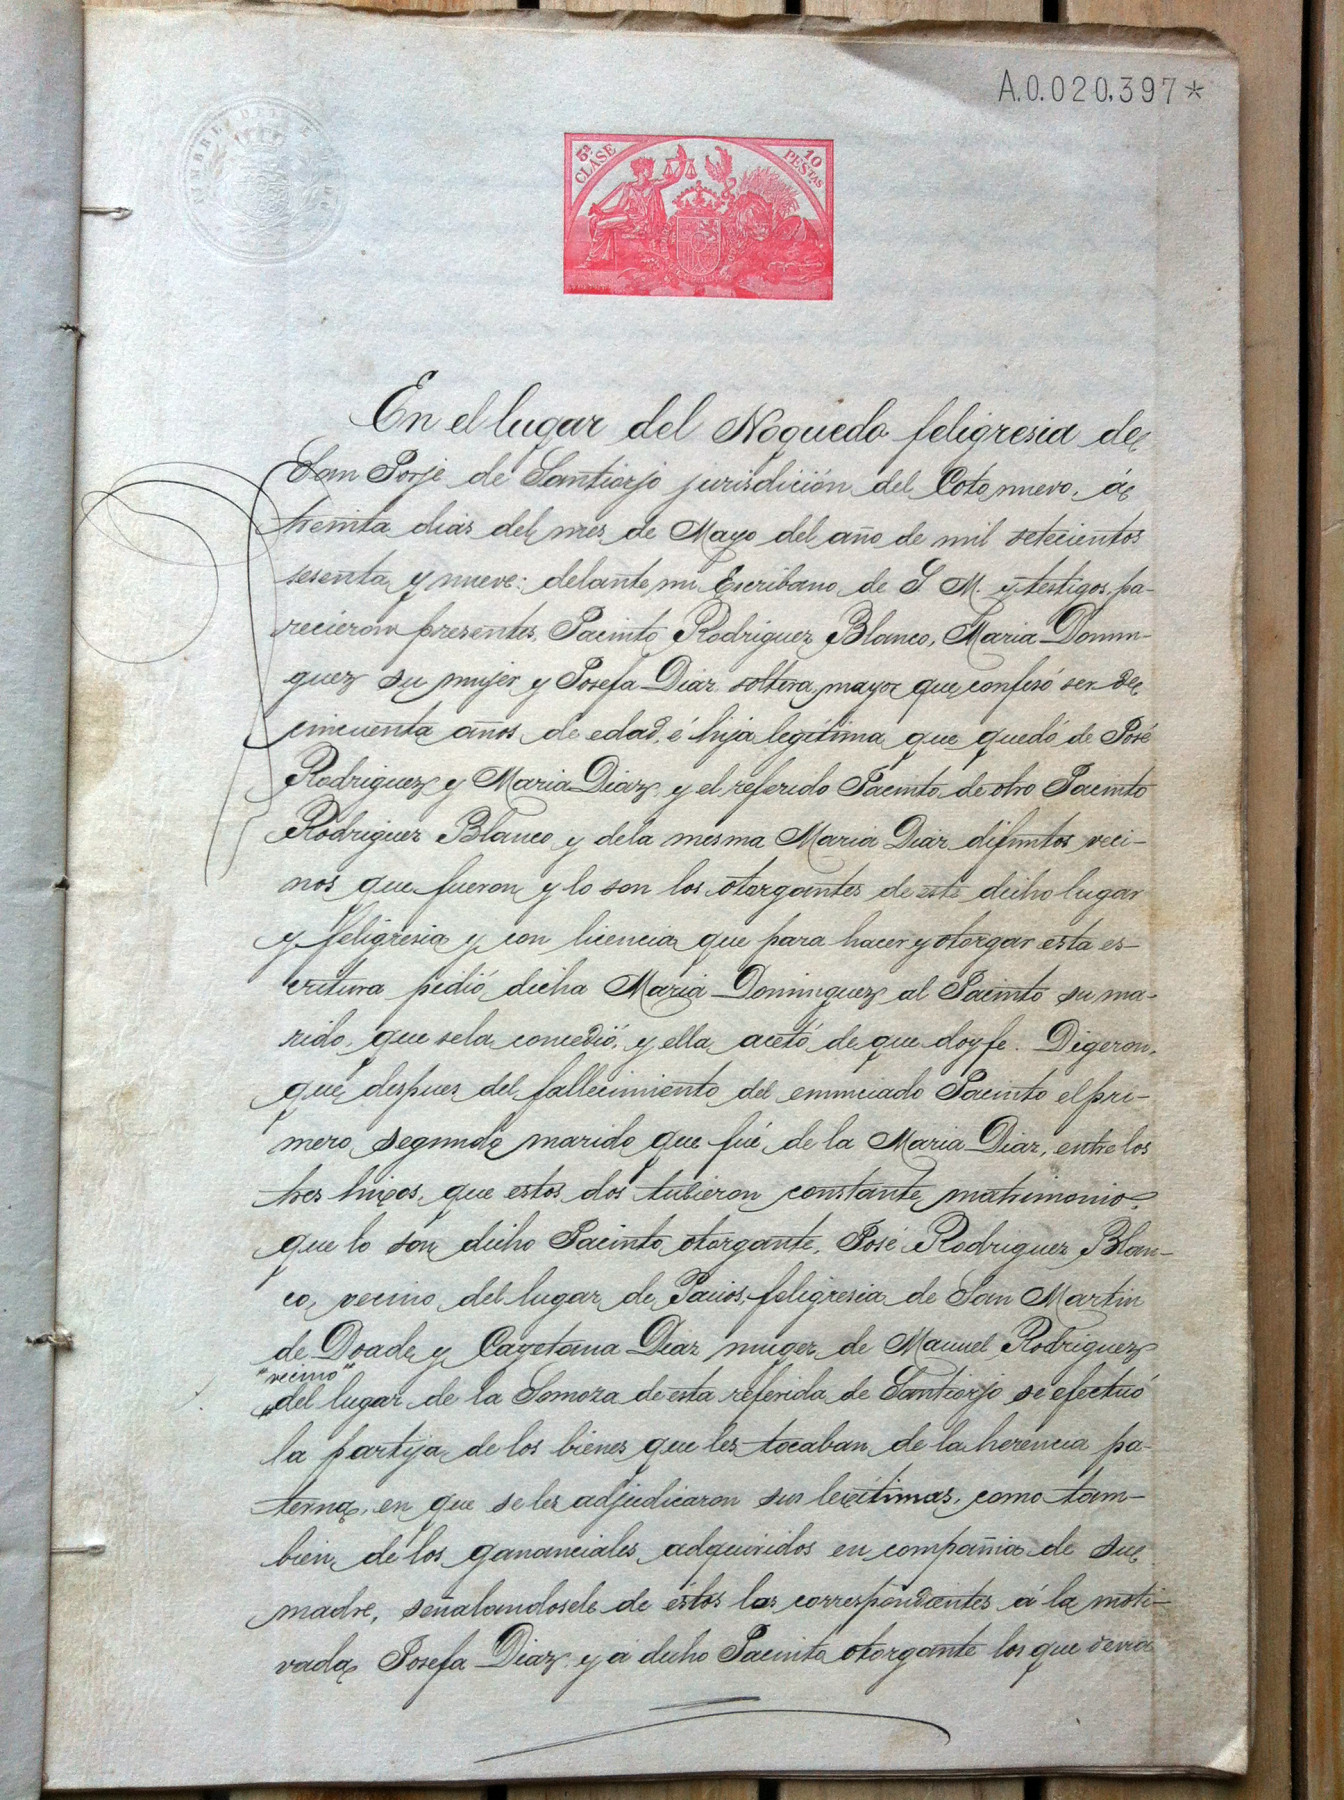 A.0.020,397*
5ª CLASE
10 PESTAS
En el lugar del Noguedo feligresia de
San Jorje de Santiorjo jurisdición del Coto nuevo, á
treinta dias del mes de Mayo del año de mil setecientos
sesenta y nueve: delante mi Escribano de S. M. y testigos, pa-
recieron presentes, Jacinto Rodriguez Blanco, Maria Domin-
guez su mujer y Josefa Diaz soltera, mayor que confesó ser de
cincuenta años de edad, é hija legítima que quedó de José
Rodriguez y Maria Diaz, y el referido Jacinto de otro Jacinto
Rodriguez Blanco y dela mesma Maria Diaz difuntos veci-
nos que fueron y lo son los otorgantes de este dicho lugar
y feligresia y con licencia que para hacer y otorgar esta es-
critura pidió dicha Maria Dominguez al Jacinto su ma-
rido, que sela concedió, y ella acetó de que doy fe. Digeron,
que despues del fallecimiento del enunciado Jacinto el pri-
mero segundo marido que fué de la Maria Diaz, entre los
tres hijos, que estos dos tubieron constante matrimonio,
que lo son dicho Jacinto otorgante, José Rodriguez Blan-
co, vecino del lugar de Pacios, feligresia de San Martin
de Doade y Cayetana Diaz muger de Manuel Rodriguez
"vecino"
del lugar de la Somoza de esta referida de Santiorjo se efectuó
la partija de los bienes que les tocaban de la herencia pa-
terna, en que se les adjudicaron sus legítimas, como tam-
bien de los gananciales adquiridos en compañia de su
madre, señalandosele de éstos las correspondientes á la moti-
vada Josefa Diaz, y á dicho Jacinto otorgante los que